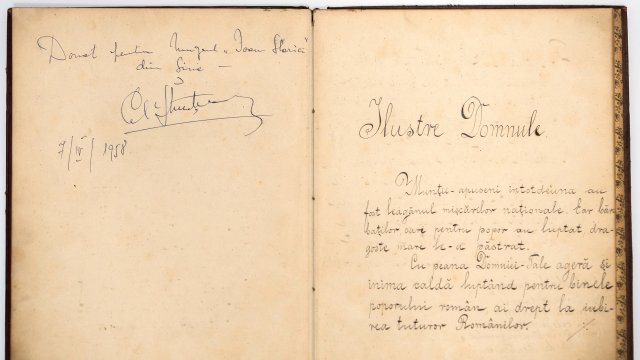 Donat pentru Muzeul „Ioan Slavici”
din Siria —
7/IV/1958
Ilustre Domnule.
Munții-apuseni, întotdeuna au
fost leagănul mișcărilor naționale. Iar băr-
baților, cari pentru popor au luptat dra-
goste mare le-a păstrat.
Cu peana Domniei-Tale ageră și
inima caldă luptând pentru binele
poporului român ai drept la iubi-
rea tuturor Românilor.